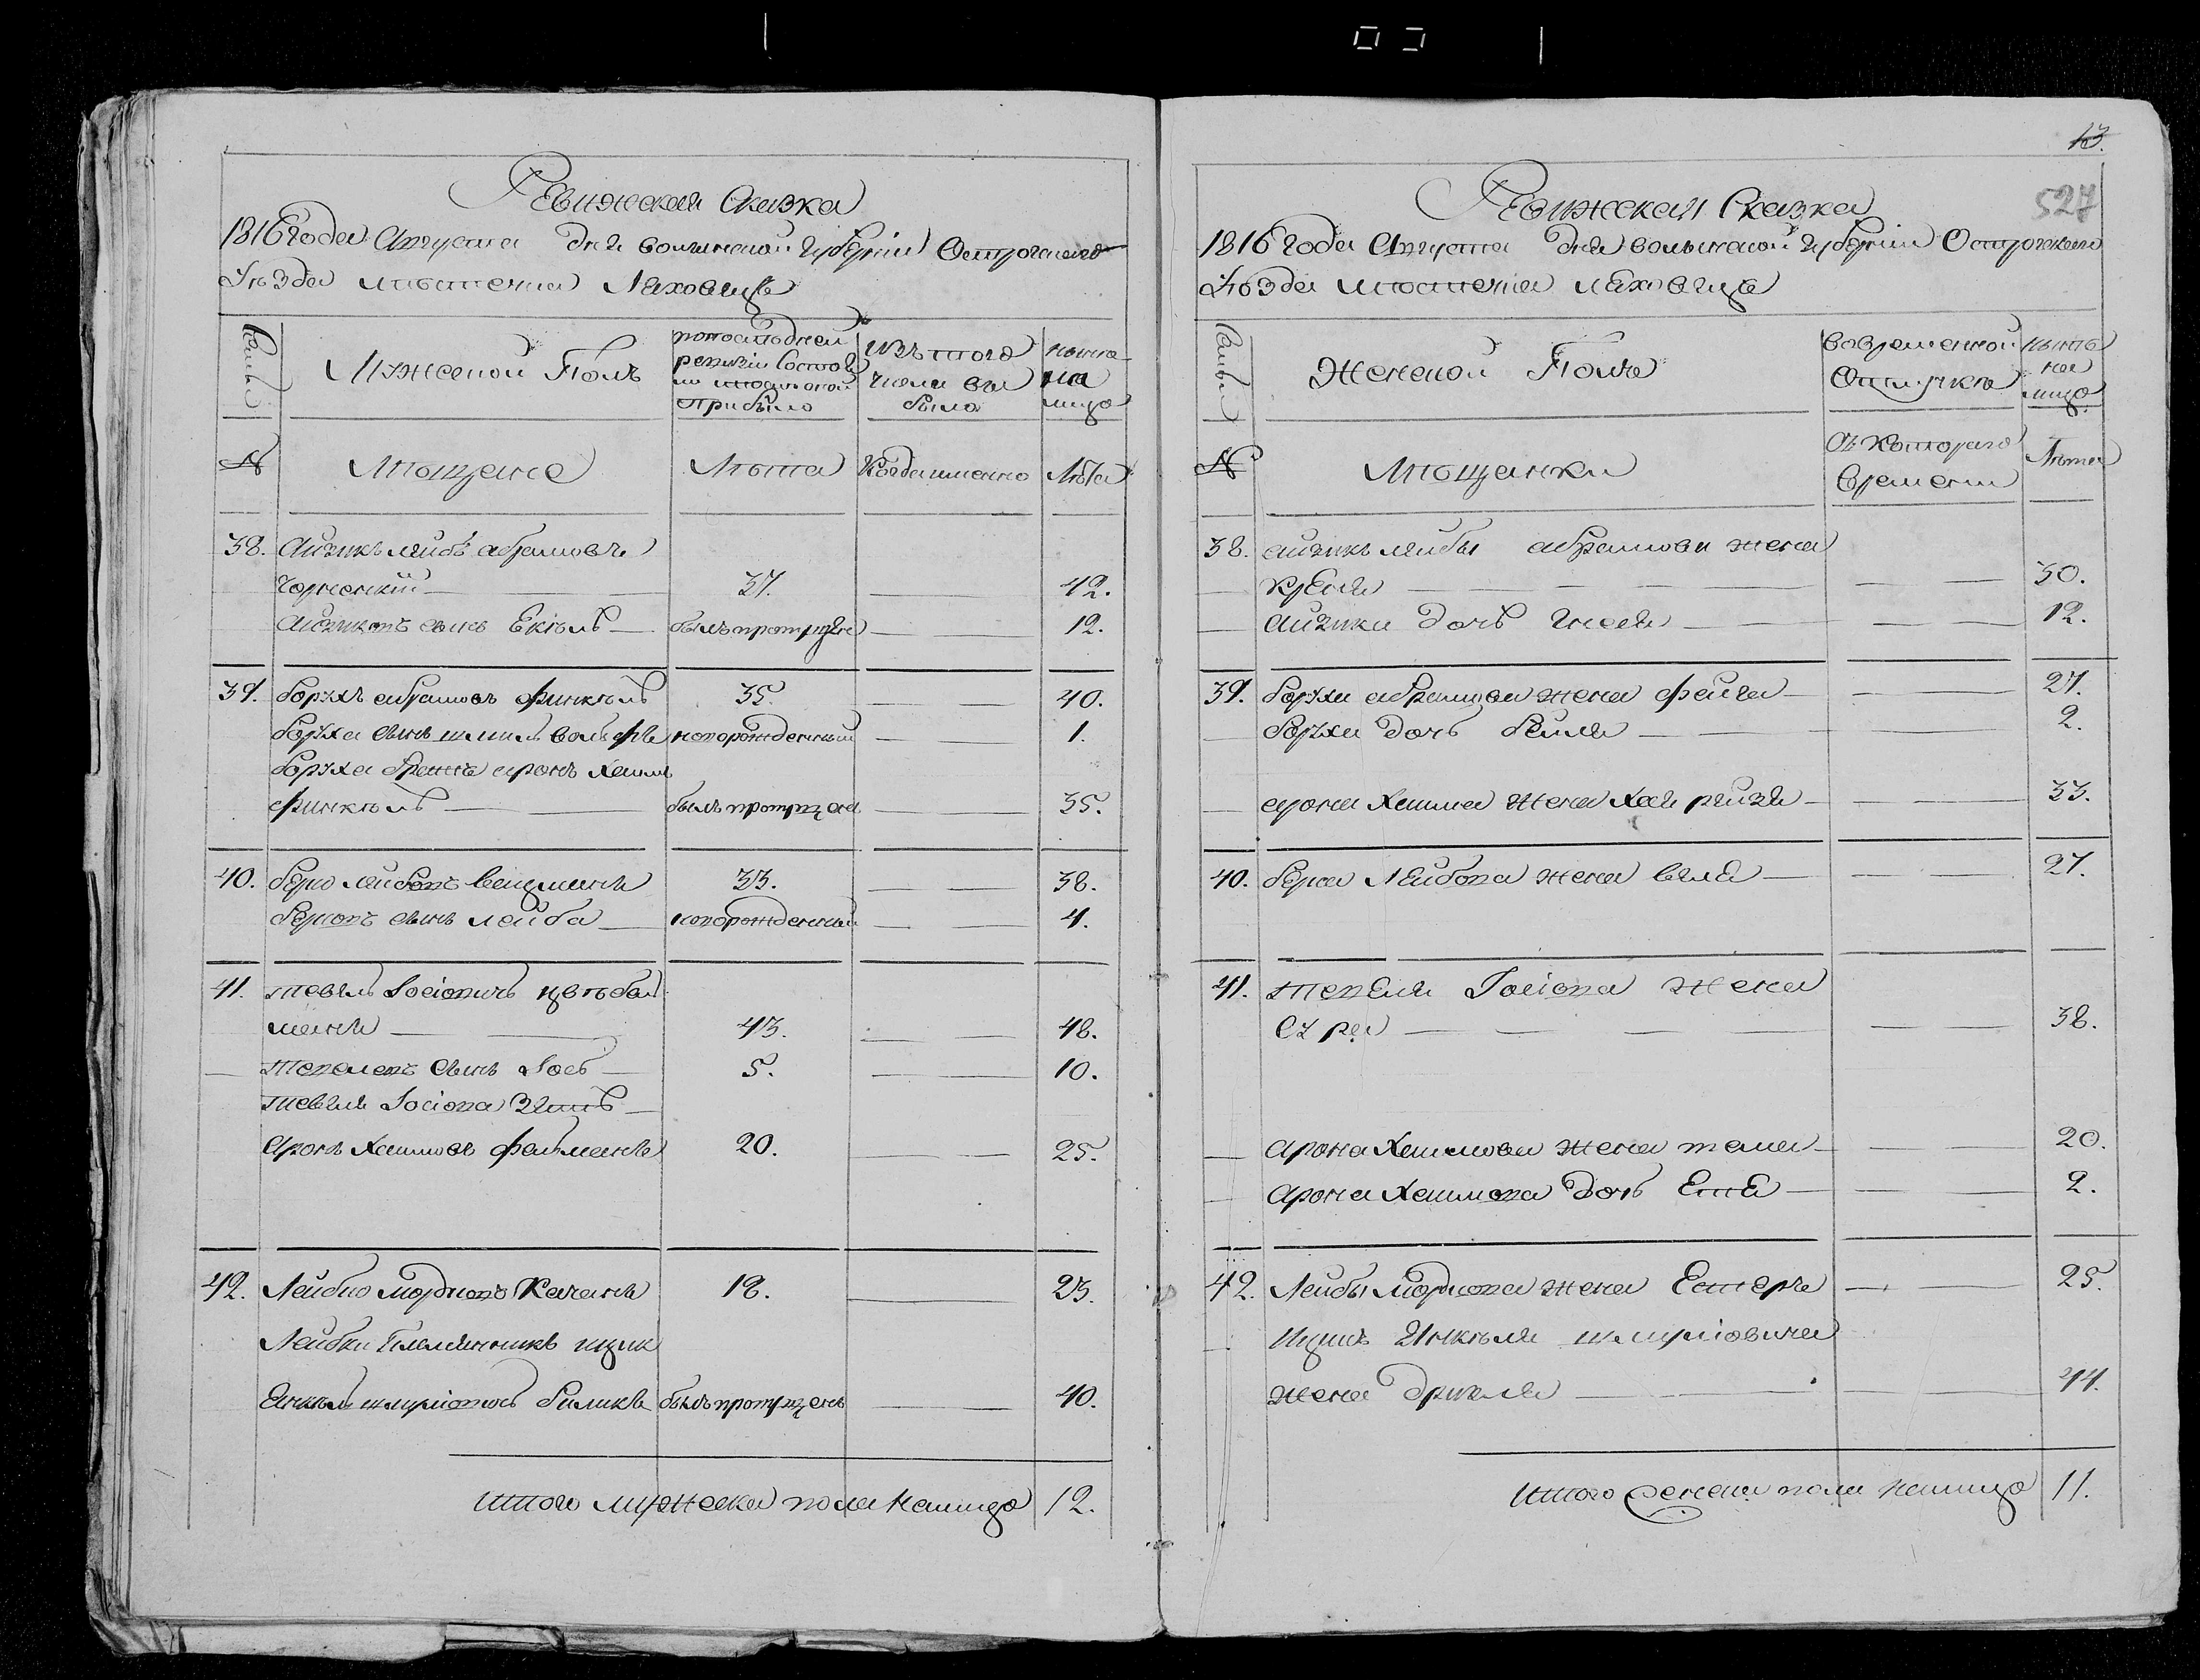 Ревижская Сказка
1816 года Августа дня волынской Губернии Острогского
Уезда местечка Ляховец
Семьи
Мужеской Полъ
попоследней ревизии Состояло и после оной прибыло
изъ того числа выбыло
ныне на лицо
№
Мещане
Лета
Когда именно
Лета
38. Айзикъ лейбъ абрамовъ
37. 42.
Айзиковъ сынъ Екель былъ пропущенъ 12.
39. борухъ абрамовъ финкель 35. 40.
боруха сынъ шмуль вольфъ новорожденный 1.
боруха братъ аронъ хаимъ
финкель былъ пропущенъ 35.
40. берко лейбовъ вайцманъ 33. 38.
берковъ сынъ лейба новорожденный 4.
41. тевель Иосиовичъ
манъ 43. 48.
тевелевъ сынъ Иось 5. 10.
тевеля Иосиова зять
аронъ хаимовъ фельманъ 20. 25.
42. Лейбко мордковъ Качанъ 18. 23.
Лейбки племянникъ ицик
Янкель шмулиовичъ биликъ былъ пропущенъ 40.
Итого мужеска пола налицо 12.
13.
527
Ревижская Сказка
1816 года Августа дня волынской губернии Острогского
Уезда местечка ляховец
Семьи
Женской Полъ
Вовременной Отлучке
ныне на лицо
№
Мещанки
Съ котораго Времени
Лета
38. айзикъ лейбы абрамова жена
круся 30.
айзика дочь 12.
39. боруха абрамова жена фейга 27.
боруха дочь бейля 2.
арона хаима жена хая рейзя 33.
40. берка Лейбова жена 27.
41. тевеля Иосиова жена
сура 38.
арона хаимова жена 20.
арона хаимова дочь 2.
42. Лейбы мордкова жена Естеръ 25.
ицика Янкеля шмулиовича
жена 44.
Итого женска пола налицо 11.